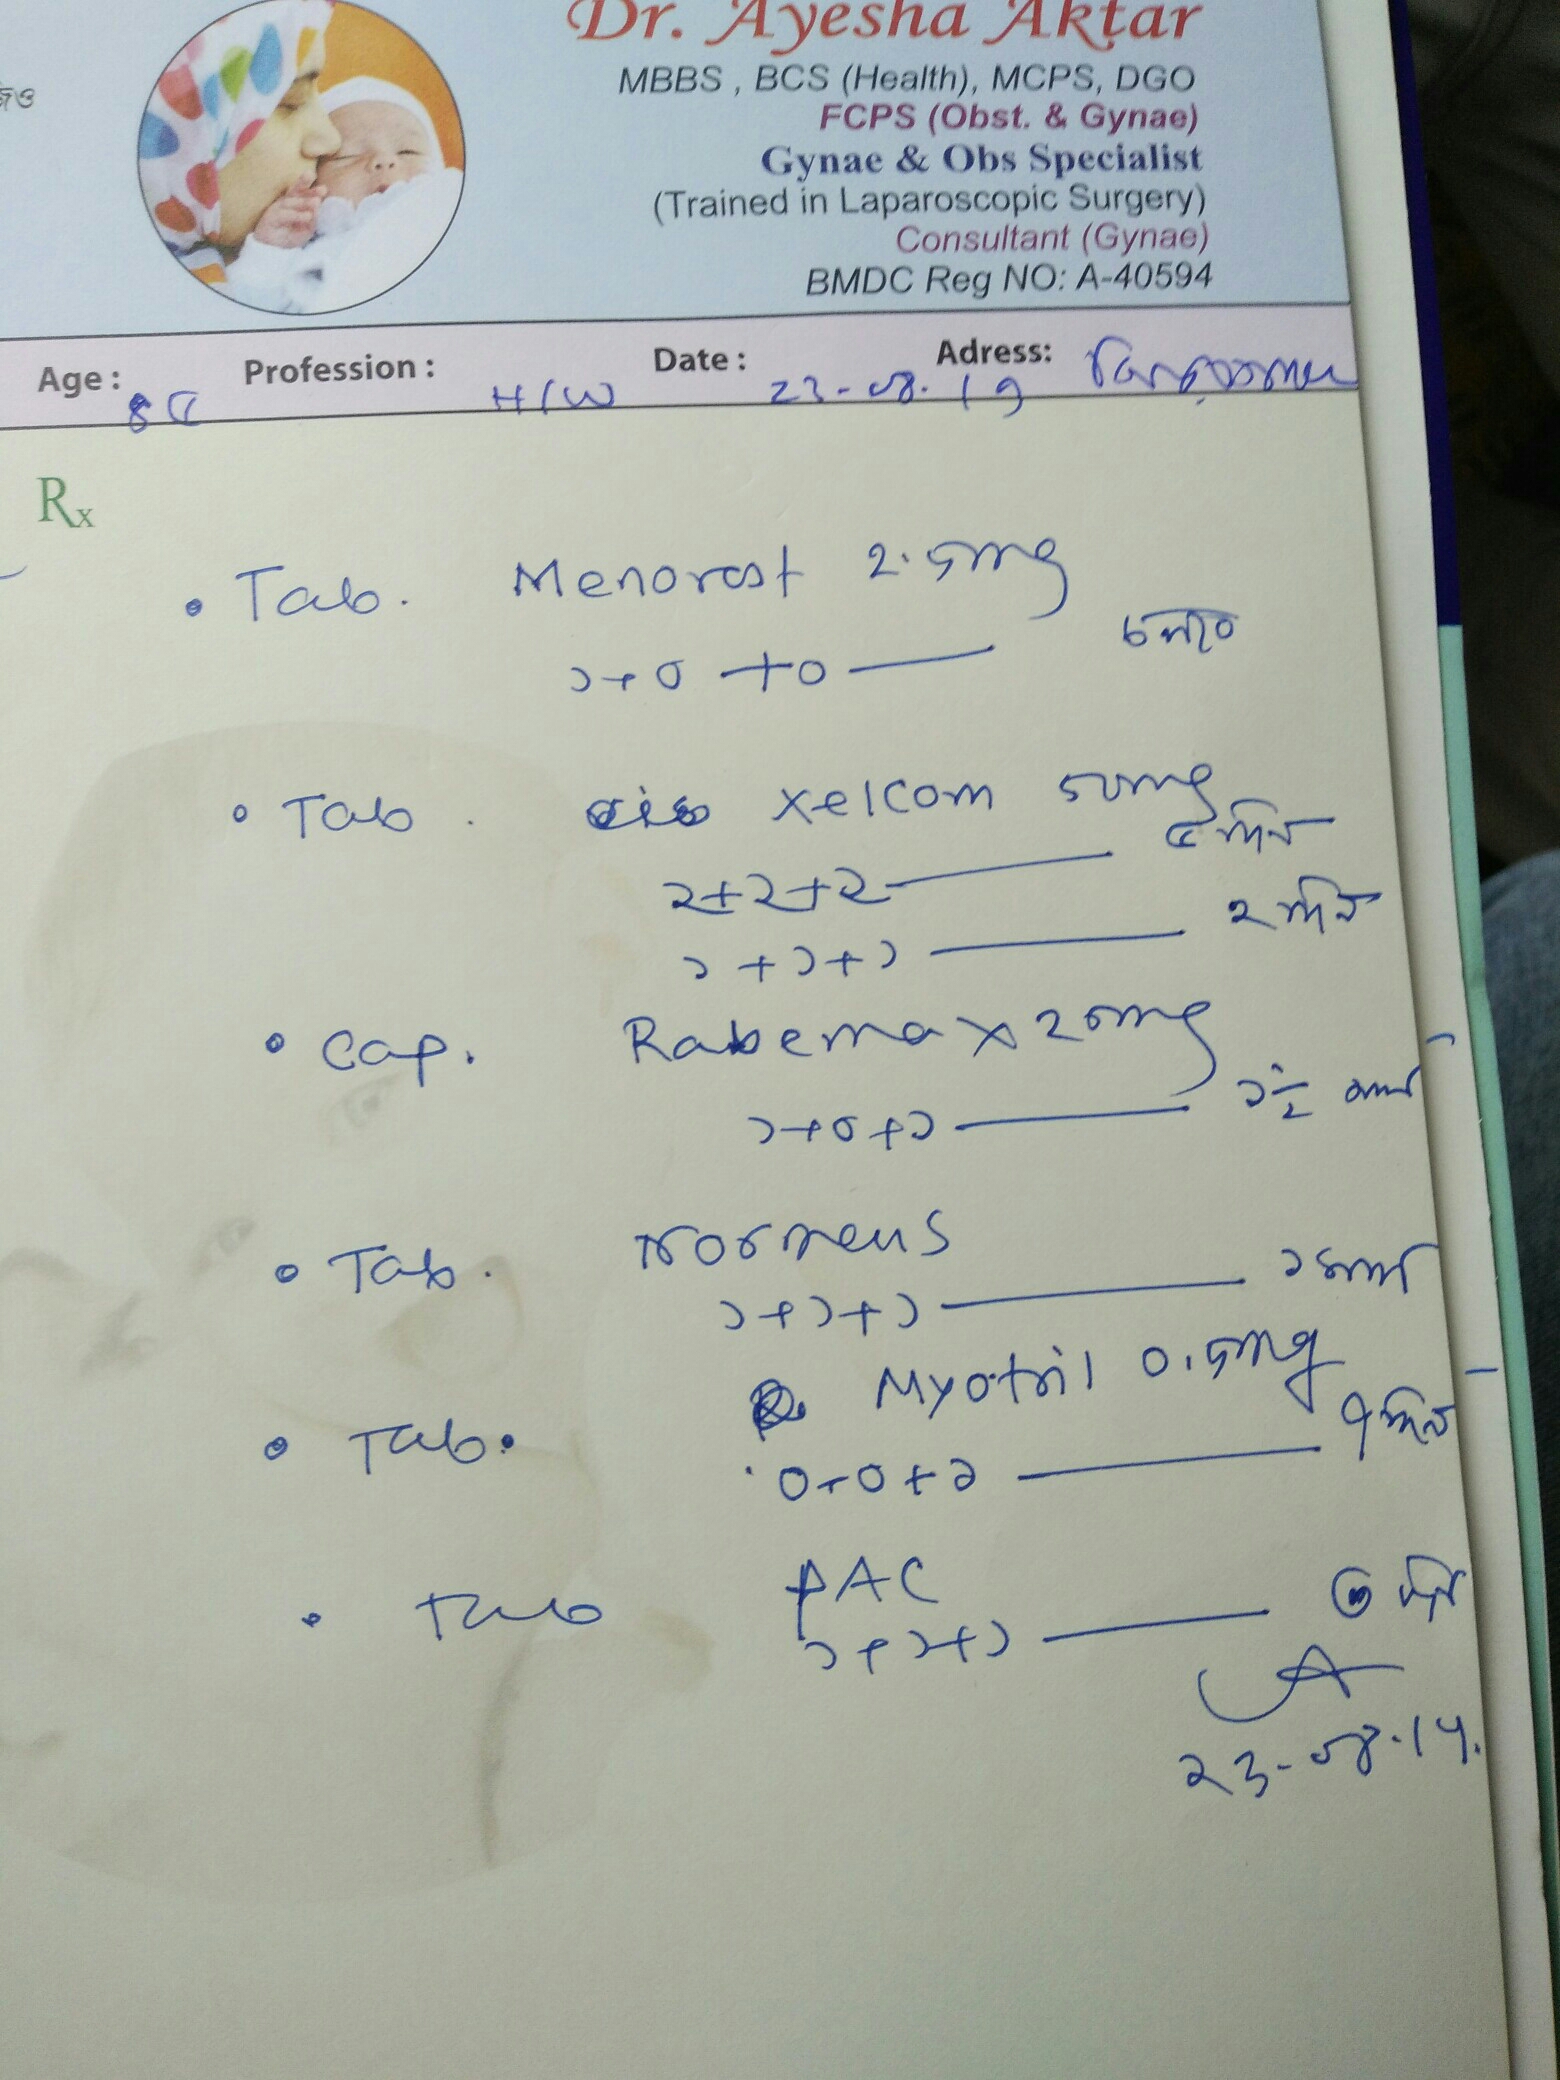 Dr. Ayesha Aktar
MBBS , BCS (Health), MCPS, DGO
FCPS (Obst. & Gynae)
Gynae & Obs Specialist
(Trained in Laparoscopic Surgery)
Consultant (Gynae)
BMDC Reg NO: A-40594
Age: ৪৫ Profession: H/W Date: 23-08.19 Adress:
Rx
• Tab. Menorest 2.5mg
১+০+০ —
• Tab. Xelcom 50mg
২+২+২ — ৫ দিন
১+১+১ — ২ দিন
• Cap. Rabemax 20mg
১+০+১ — ১½ মাস
• Tab. Norneus
১+১+১ — ১ মাস
• Tab. Myotril 0.5mg
০+০+১ — ৭ দিন
• Tab PAC
১+১+১ — দিন
23-08.19.